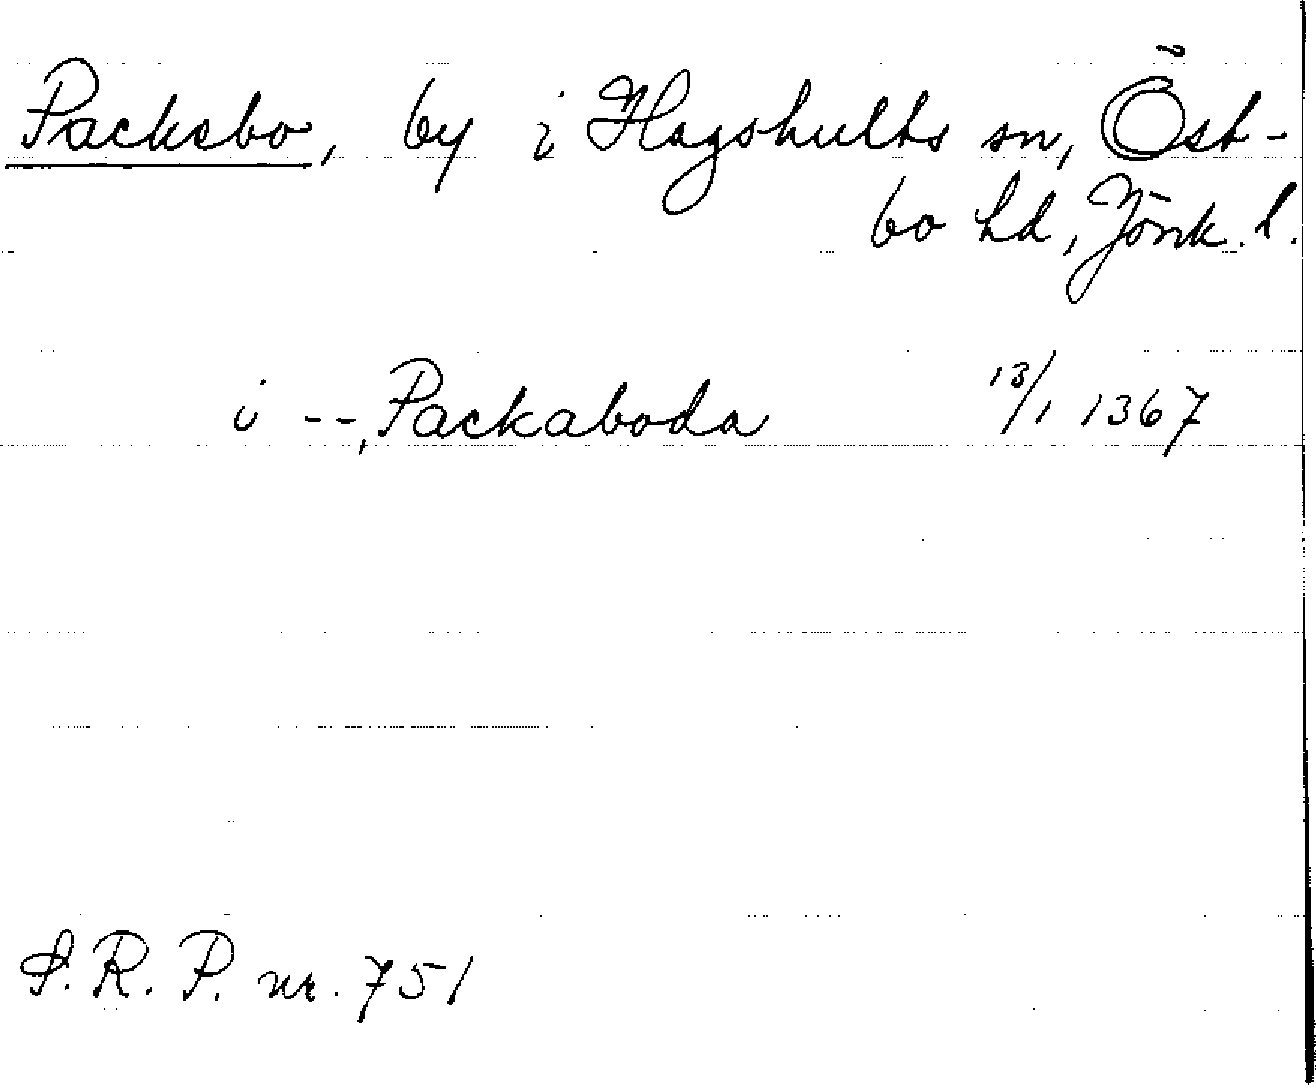 Packebo, by i Hagshults sn, Öst-
bo hd, Jönk. l.
i --, Packaboda 13/1 1367
S.R.P. nr. 751